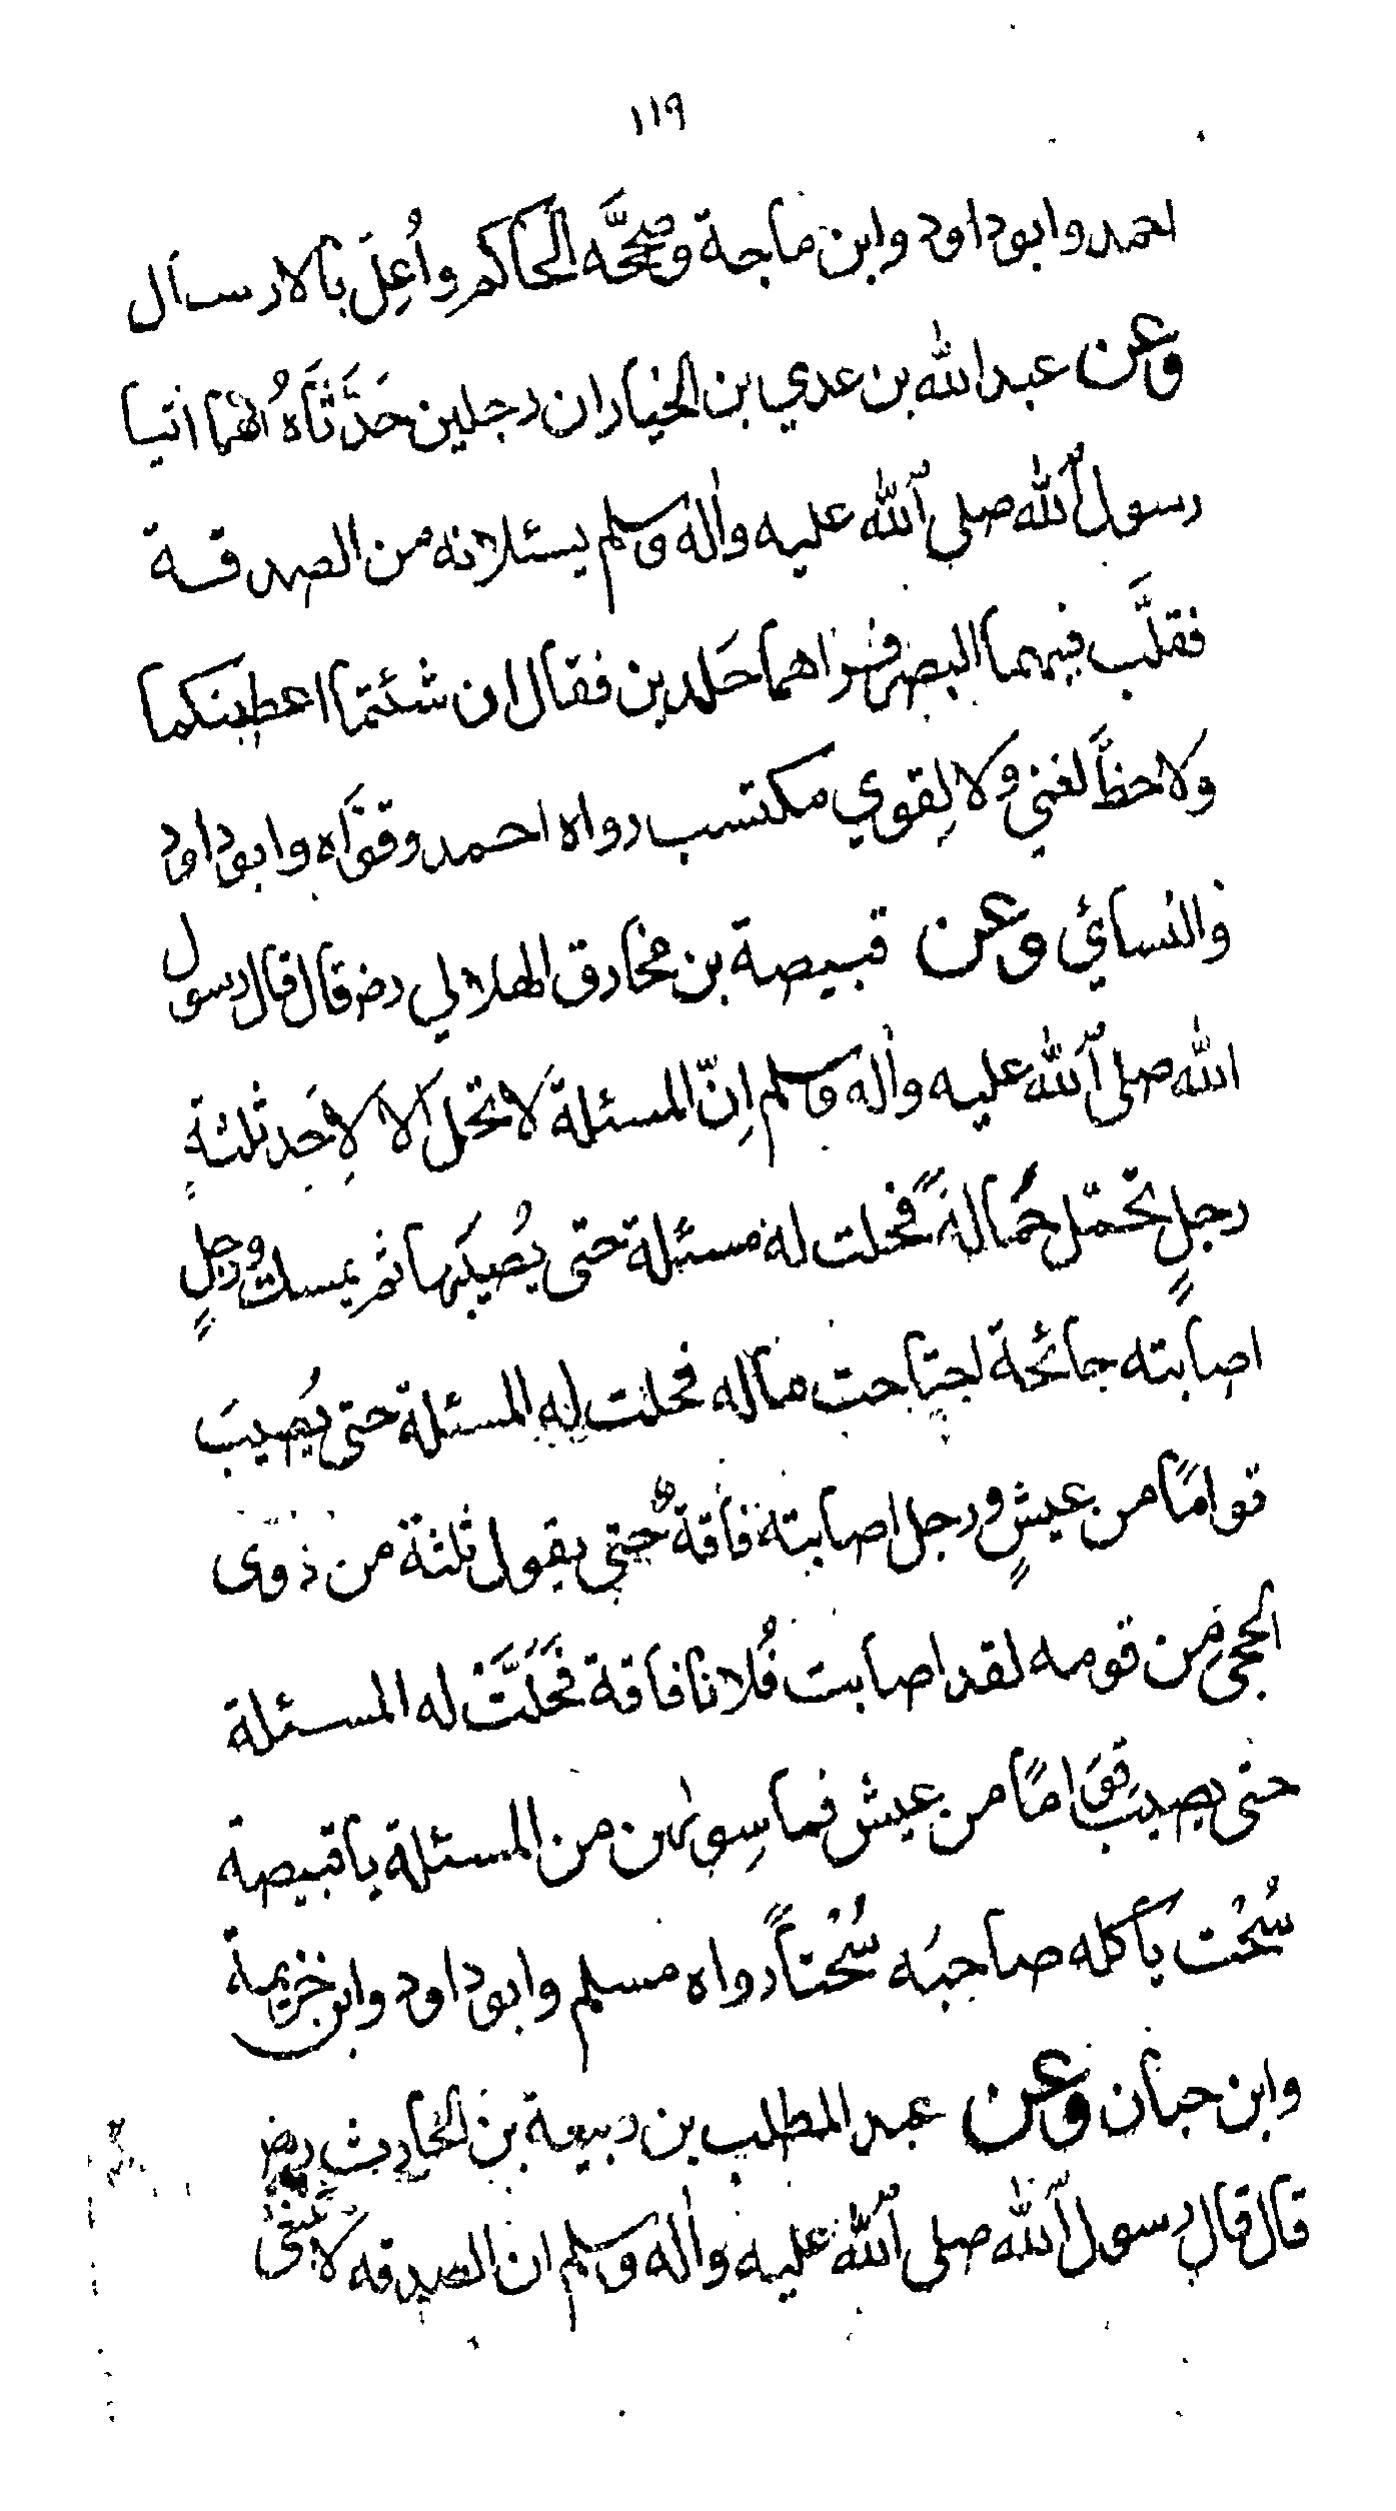 ١١٩
احمد وابوداود وابن ماجة وصحَّحَه الحاكم وأُعِلّ بالارسال
وعن عبد الله بن عدي بن الخيار ان رجلين حَدَّثَاهُ انهما اتيا
رسول الله صلى الله عليه واله وسلم يسئلانه من الصدقة
فقلَّب فيهما البصر فراهما جَلدين فقال ان شئتما اعطيتكما
ولا حظاً لغني ولا لِقوي مكتسب رواه احمد وقوّاه وابوداود
والنسائي وعن قبيصة بن مخارق الهلالي رضـ قال قال رسول
الله صلى الله عليه واله وسلم اِنّ المسئلة لا تحل الا لِاَحَدِ ثلثةٍ
رجلٍ تحمّل حَمالةً فحلت له مسئلة حتى يُصيبَها ثم يمسك ورجلٍ
اصابته جائحة اجتاحت ماله فحلت له المسئلة حتى يُصيبَ
قوامًا من عيشٍ ورجل اصابته فاقةٌ حتى يقول ثلثة من ذوى
الحجى من قومه لقد اصابت فُلانا فاقة فَحَلَّتْ له المسئلة
حتى يصيبَ قوَامًا من عيش فما سِواهن من المسئلة يا قبيصة
سُحْت يأكله صاحبُه سُحْتاً رواه مسلم وابوداود وابن خزيمة
وابن حبان وعن عبد المطلب بن ربيعة بن الحارث رضـ
قال قال رسول الله صلى الله عليه واله وسلم ان الصدقه لا تنبغى